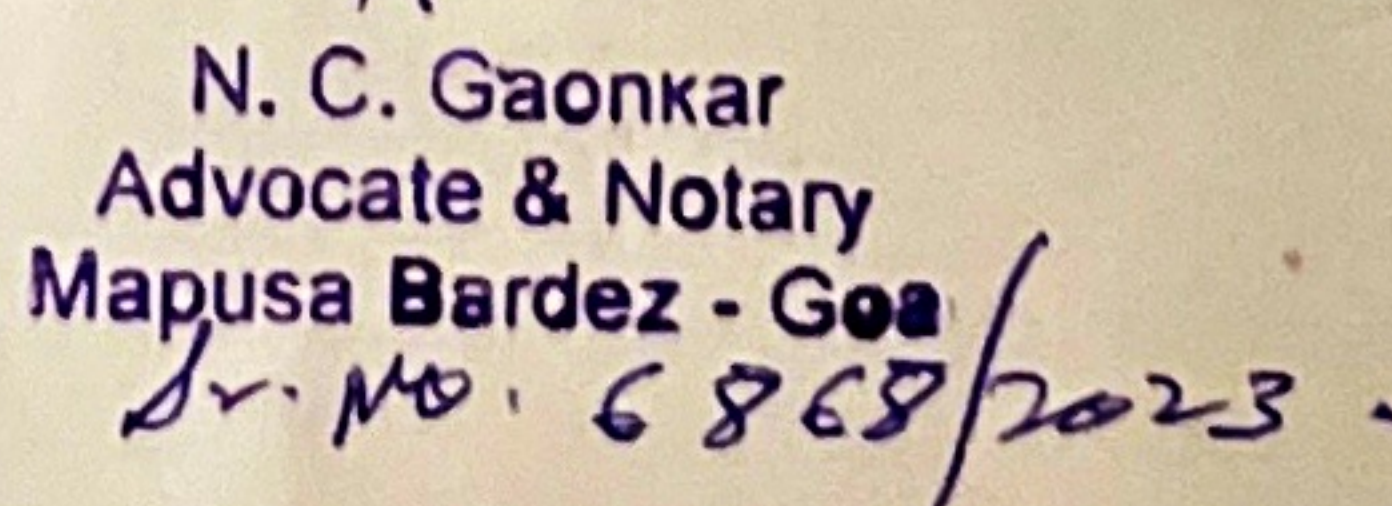 N. C. Gaonkar
Advocate & Notary
Mapusa Bardez - Goa
Sr. No. 6868/2023.